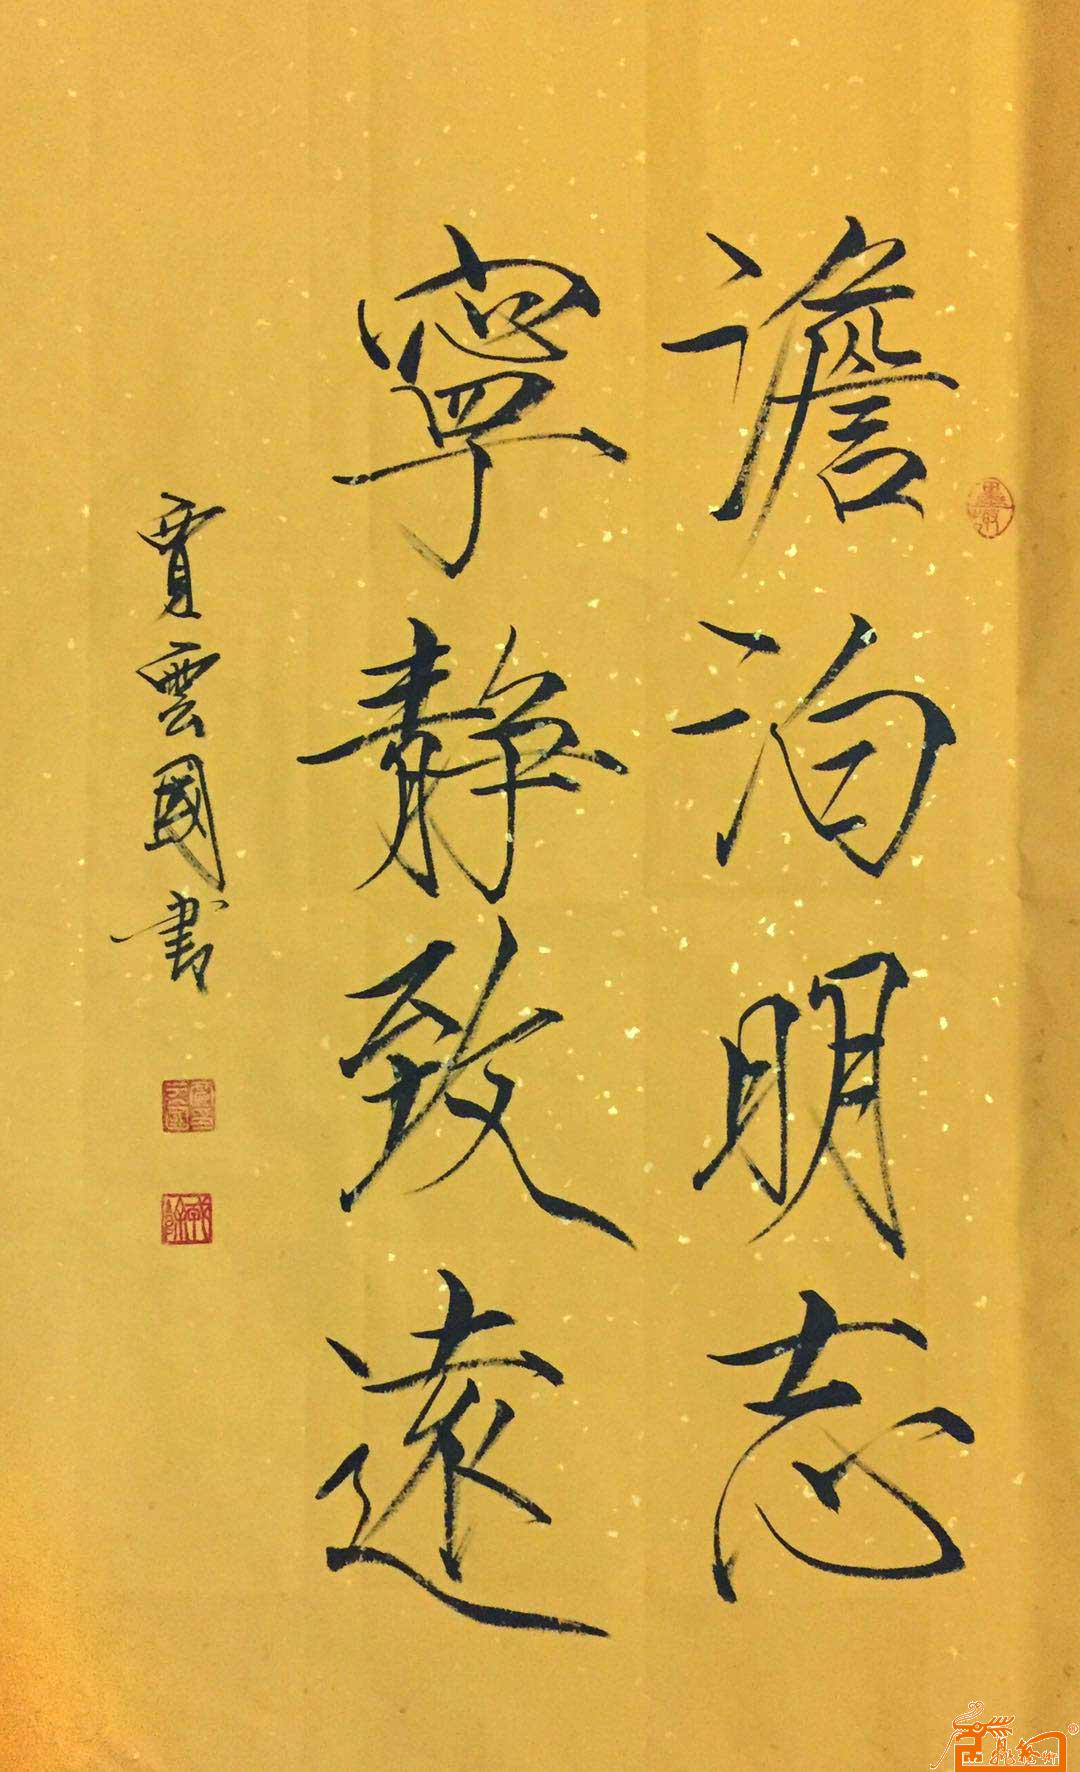 澹泊明志
寧靜致遠
賈雲國書